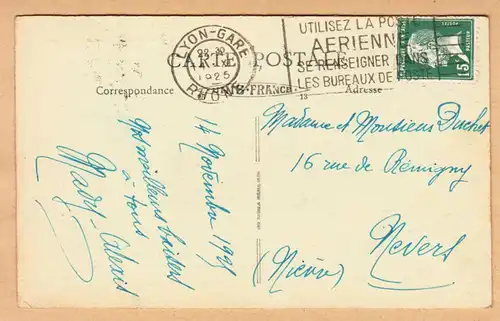 LYON-GARE
1925
RHONE
UTILISEZ LA POSTE
AERIENNE
SE RENSEIGNER
LES BUREAUX DE POSTE
15
CARTE POSTALE
FRANCE
13
Correspondance
Adresse
14 Novembre 1925
Nos meilleurs baisers
à tous
Mary-Alexis
Madame et Monsieur Duchet
16 rue de Rémigny
Nevers
(Nièvre)